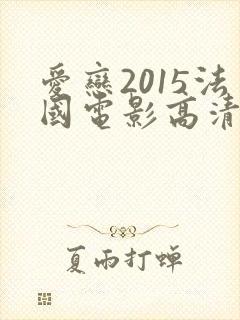 愛戀2015法
國電影高清
夏雨打蝉